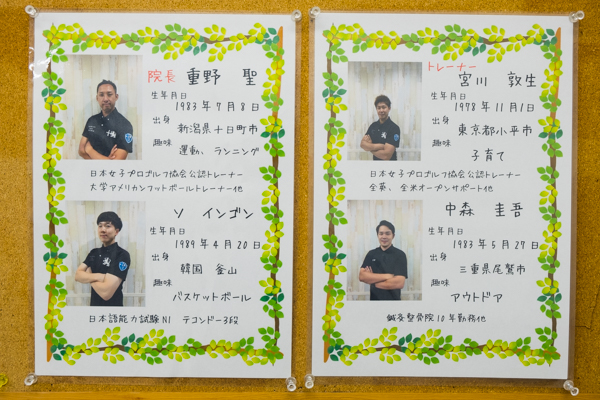 院長 重野 聖
生年月日
1983年7月8日
出身
新潟県十日町市
趣味
運動、ランニング
日本女子プロゴルフ協会公認トレーナー
大学アメリカンフットボールトレーナー他
ソ インゴン
生年月日
1989年4月20日
出身
韓国 釜山
趣味
バスケットボール
日本語能力試験N1 テコンドー3段
トレーナー
宮川 敦生
生年月日
1978年11月1日
出身
東京都小平市
趣味
子育て
日本女子プロゴルフ協会公認トレーナー
全英、全米オープンサポート他
中森 圭吾
生年月日
1983年5月27日
出身
三重県尾鷲市
趣味
アウトドア
鍼灸整骨院10年勤務他